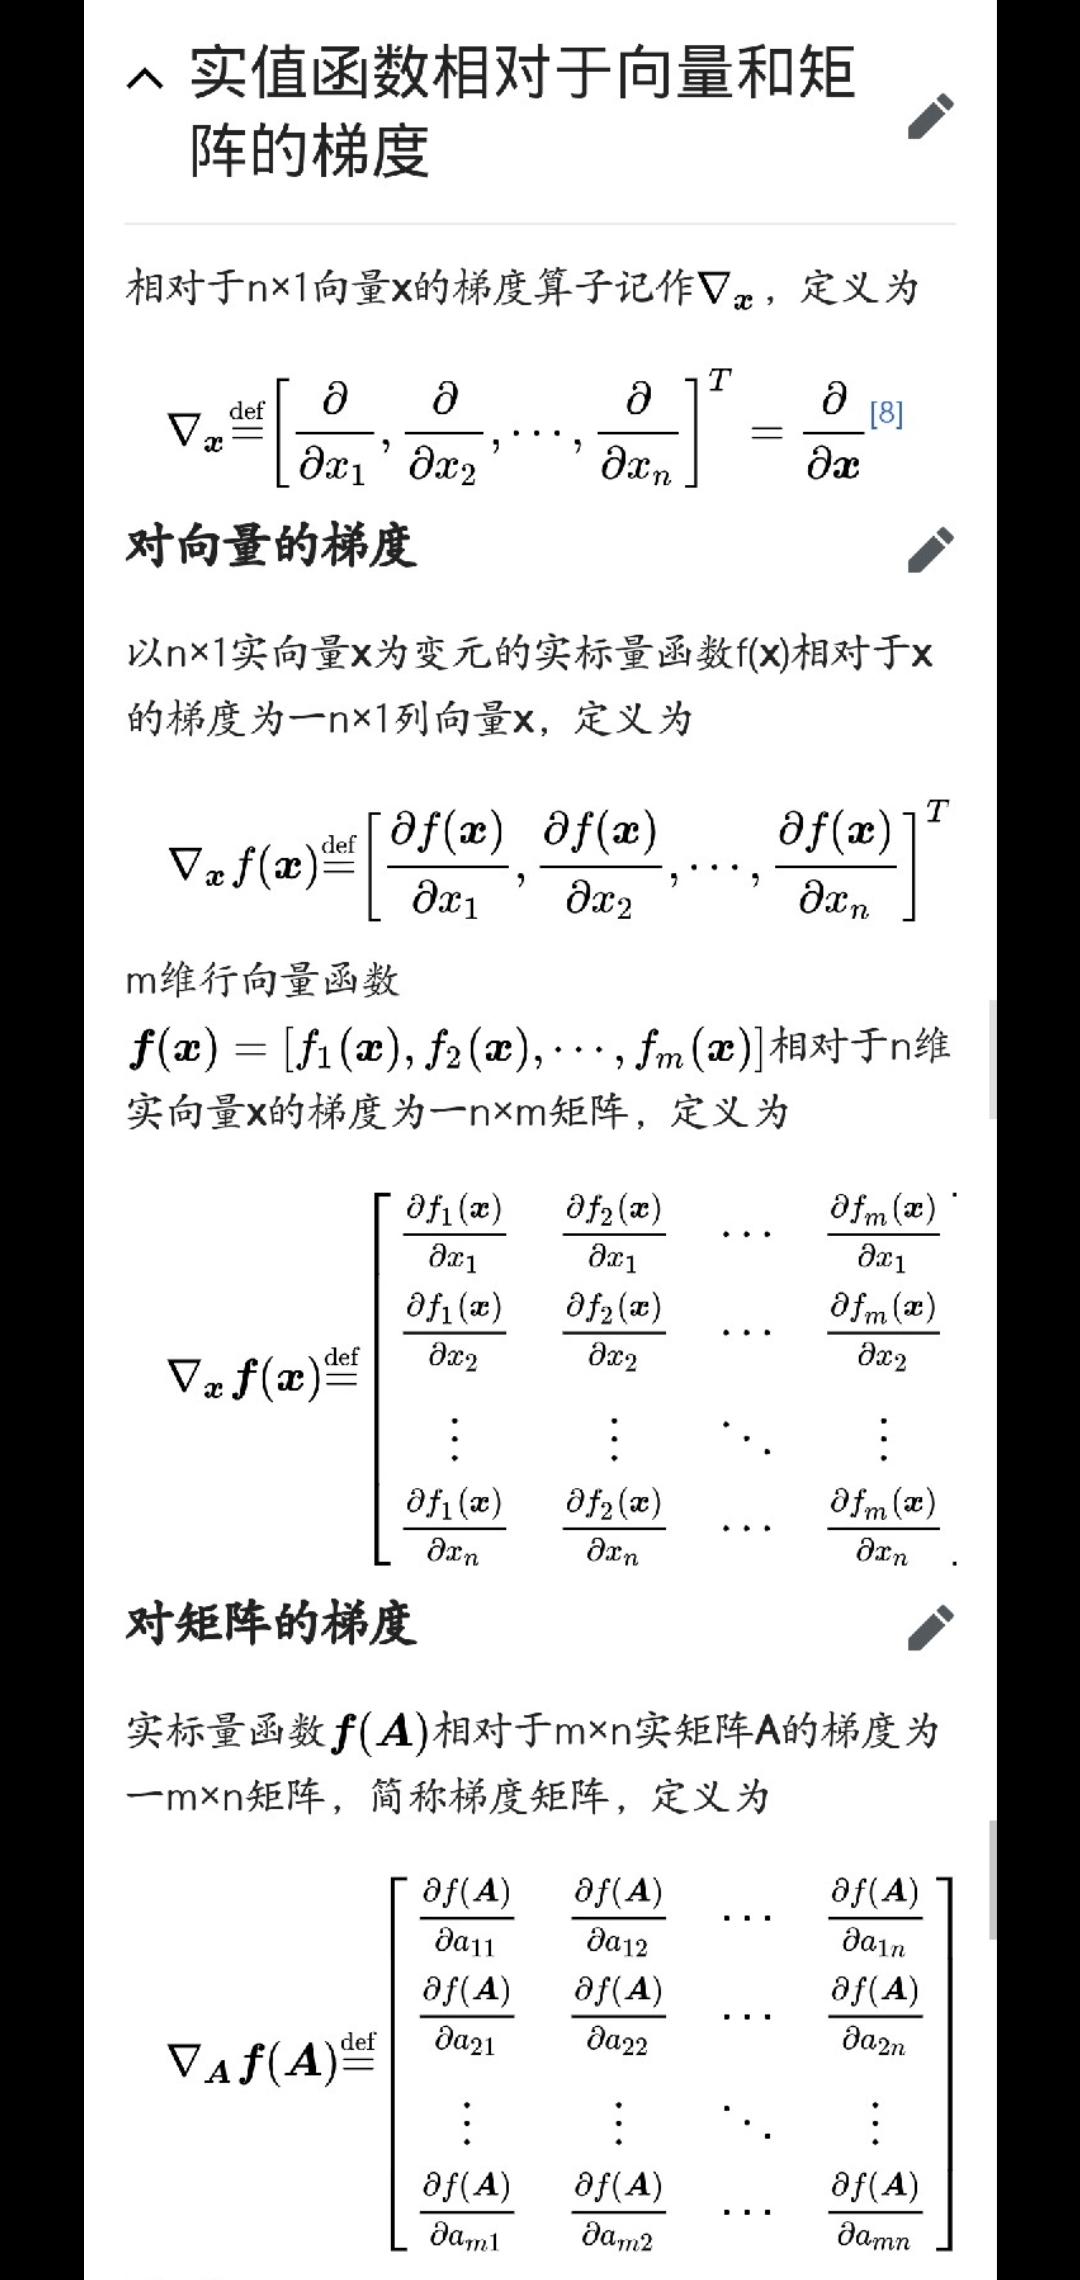 实值函数相对于向量和矩
阵的梯度
相对于n×1向量x的梯度算子记作∇ₓ，定义为
∇ₓ def= [∂/∂x₁, ∂/∂x₂, ⋯, ∂/∂xₙ]ᵀ = ∂/∂x [8]
对向量的梯度
以n×1实向量x为变元的实标量函数f(x)相对于x
的梯度为一n×1列向量x，定义为
∇ₓ f(x) def= [∂f(x)/∂x₁, ∂f(x)/∂x₂, ⋯, ∂f(x)/∂xₙ]ᵀ
m维行向量函数
f(x) = [f₁(x), f₂(x), ⋯, fₘ(x)]相对于n维
实向量x的梯度为一n×m矩阵，定义为
∂f₁(x)/∂x₁ ∂f₂(x)/∂x₁ ⋯ ∂fₘ(x)/∂x₁
∂f₁(x)/∂x₂ ∂f₂(x)/∂x₂ ⋯ ∂fₘ(x)/∂x₂
∇ₓ f(x) def=
⋮ ⋮ ⋱ ⋮
∂f₁(x)/∂xₙ ∂f₂(x)/∂xₙ ⋯ ∂fₘ(x)/∂xₙ
对矩阵的梯度
实标量函数f(A)相对于m×n实矩阵A的梯度为
一m×n矩阵，简称梯度矩阵，定义为
∂f(A)/∂a₁₁ ∂f(A)/∂a₁₂ ⋯ ∂f(A)/∂a₁ₙ
∂f(A)/∂a₂₁ ∂f(A)/∂a₂₂ ⋯ ∂f(A)/∂a₂ₙ
∇_A f(A) def=
⋮ ⋮ ⋱ ⋮
∂f(A)/∂aₘ₁ ∂f(A)/∂aₘ₂ ⋯ ∂f(A)/∂aₘₙ